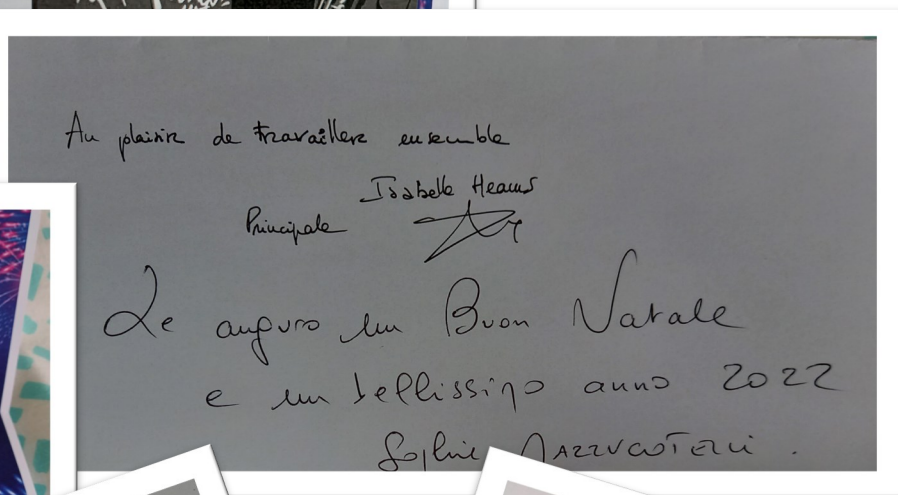 Au plaisir de travailler ensemble
Isabelle Heams
Principale
Le auguro un Buon Natale
e un bellissimo anno 2022
Sophie